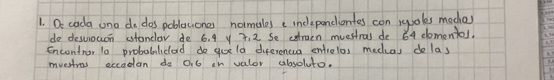 1. De cada una de dos poblaciones normales e independientes con iguales medias
de desviación estandar de 6.4 y 7.2 Se extraen muestras de 64 elementos.
Encontrar la probabilidad de que la diferencia entre las medias de las
muestras excedan de 0.6 en valor absoluto.